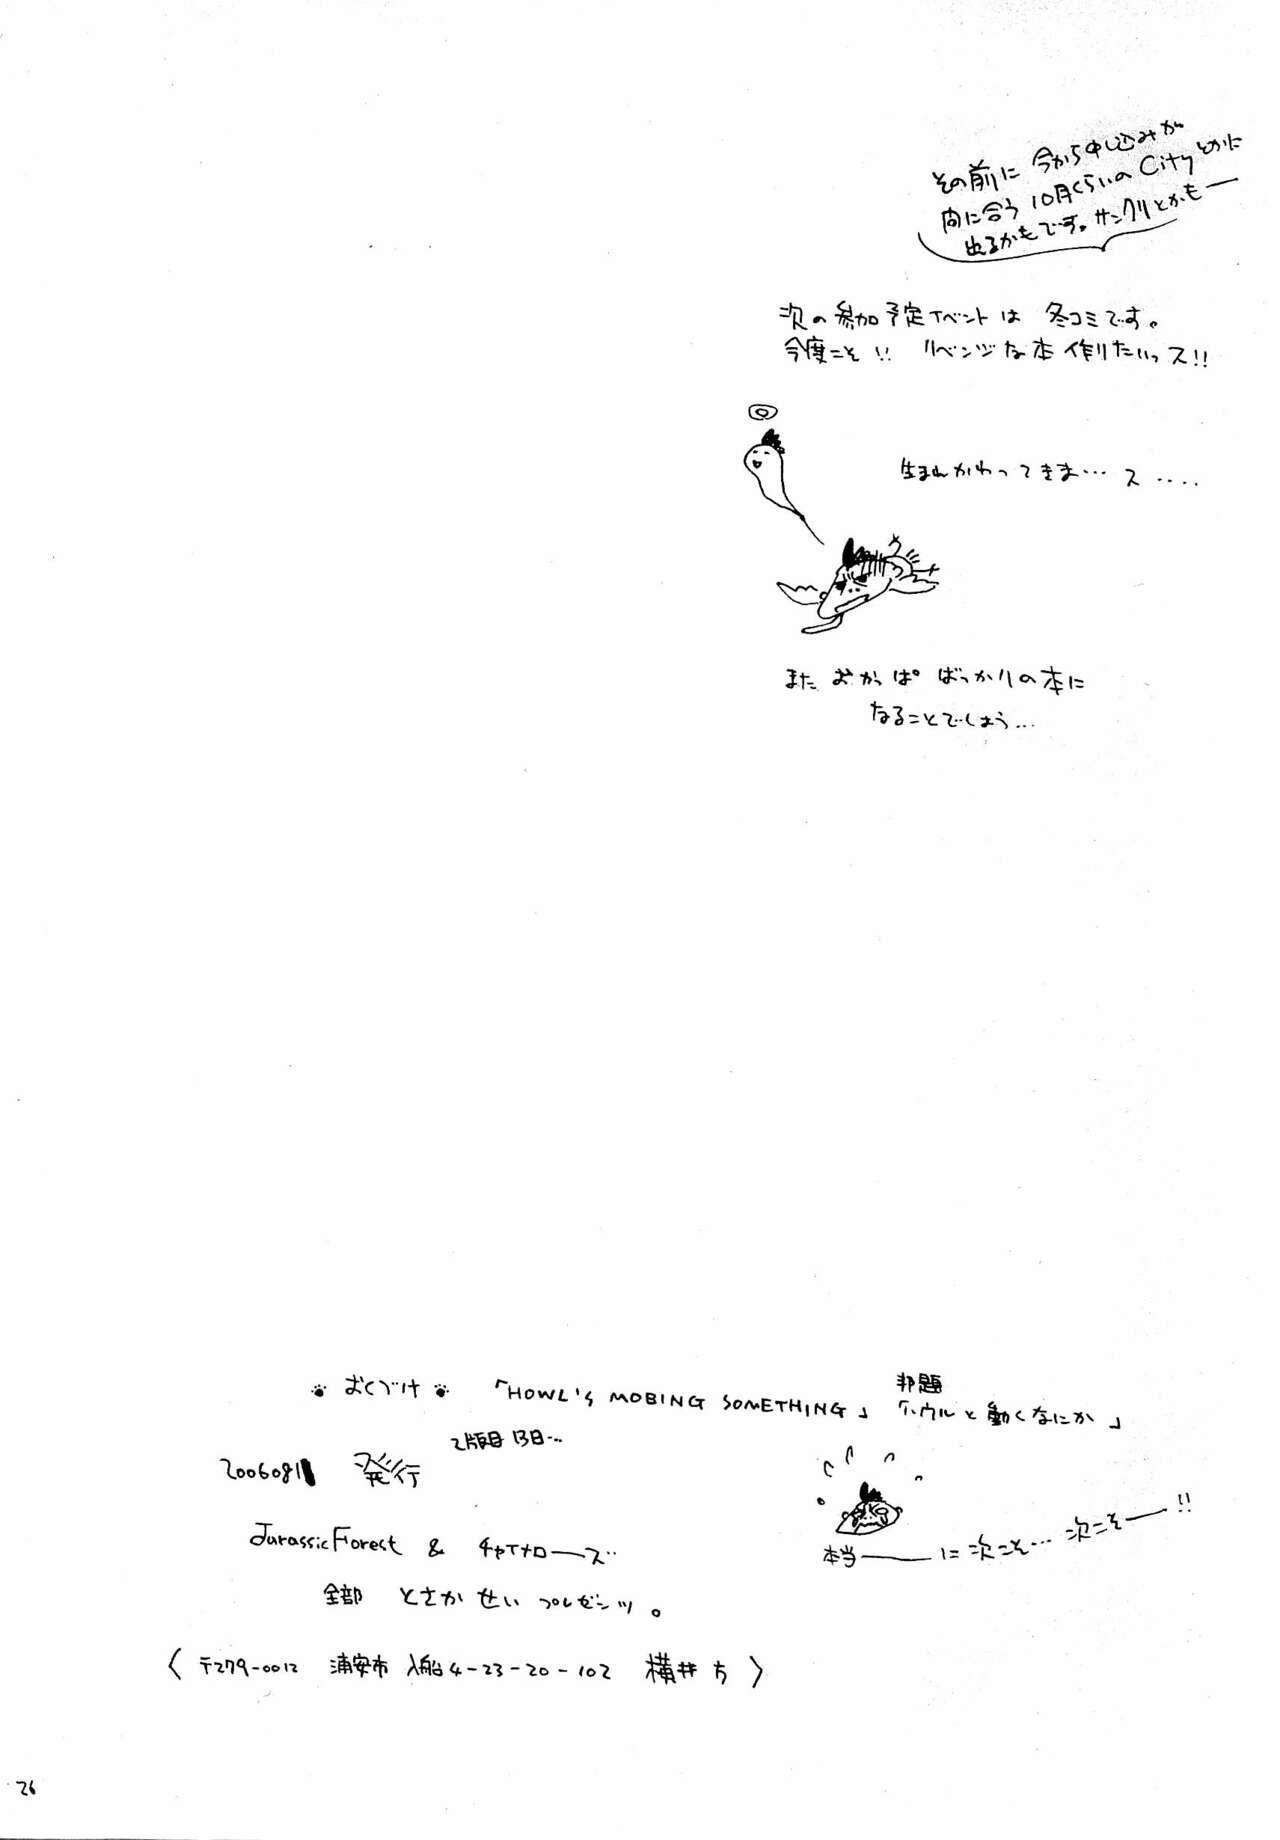 その前に 今から申込みが
間に合う 10月くらいの Cityとかに
出るかもです。サンクリとかもー
次の参加予定イベントは 冬コミです。
今度こそ!! リベンジな本 作りたいっス!!
生まれかわってきま…ス ‥‥
また おかっぱ ばっかりの本に
なることでしょう…
おくづけ 「HOWL'S MOBING SOMETHING」
邦題
「ハウルと動くなにか」
2版目 13日…
2006081 発行
Jurassic Forest & チャイメローズ
全部 とさかせい プレゼンツ。
本当——に次こそ… 次こそ—!!
〈 〒279-0012 浦安市 入船4-23-20-102 横井方 〉
26